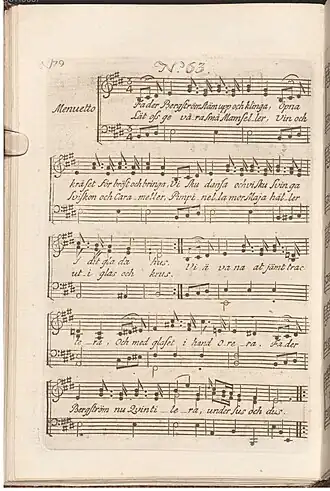 N.º 63.
Menuetto
Fader Bergström stäm upp och klinga, Öpna
Låt oss ge våra små Mamseller, Vin och
kräset för bröst och bringa, Vi sku dansa och vi sku svinga
sviskon och Carameller,
I dit glada hus.
ut i glas och krus.
Vi ä vana at jämt trac
te_ra, Och med glaset i hand o_re_ra. Fader
Bergström nu Qvinti_le_ra, under sus och dus.